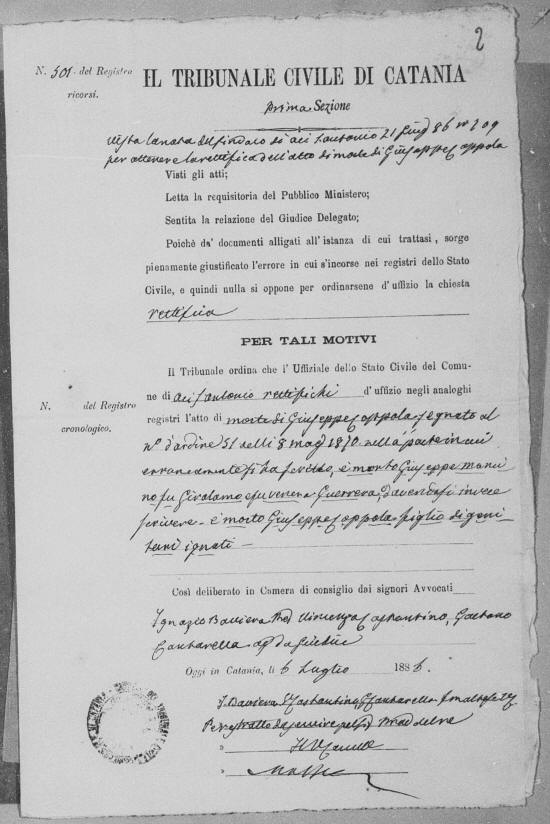 2
N. 501 del Registro
ricorsi.
IL TRIBUNALE CIVILE DI CATANIA
Prima Sezione
Vista la nota del Sindaco di Aci S. Antonio 21 86 n° 209
per ottenere la rettifica dell'atto di morte di Giuseppe Coppola
Visti gli atti;
Letta la requisitoria del Pubblico Ministero;
Sentita la relazione del Giudice Delegato;
Poichè da' documenti alligati all'istanza di cui trattasi, sorge
pienamente giustificato l'errore in cui s'incorse nei registri dello Stato
Civile, e quindi nulla si oppone per ordinarsene d'uffizio la chiesta
rettifica
PER TALI MOTIVI
Il Tribunale ordina che l'Uffiziale dello Stato Civile del Comu-
ne di Aci S. Antonio rettifichi d'uffizio negli analoghi
N. del Registro
cronologico.
registri l'atto di morte di Giuseppe Coppola segnato al
n° d'ordine 51 delli 8 mag 1870 nella parte in cui
erroneamente si ha scritto, è morto Giuseppe Manci
no fu Girolamo e fu Venera Guerrera, dovendosi invece
scrivere - è morto Giuseppe Coppola figlio di geni
tori ignoti
Così deliberato in Camera di consiglio dai signori Avvocati
Ignazio Baviera Vincenzo Costantino, Gaetano
Cantarella
Oggi in Catania, li 6 Luglio 1886.
I. Baviera V. Costantino G. Cantarella
Per estratto